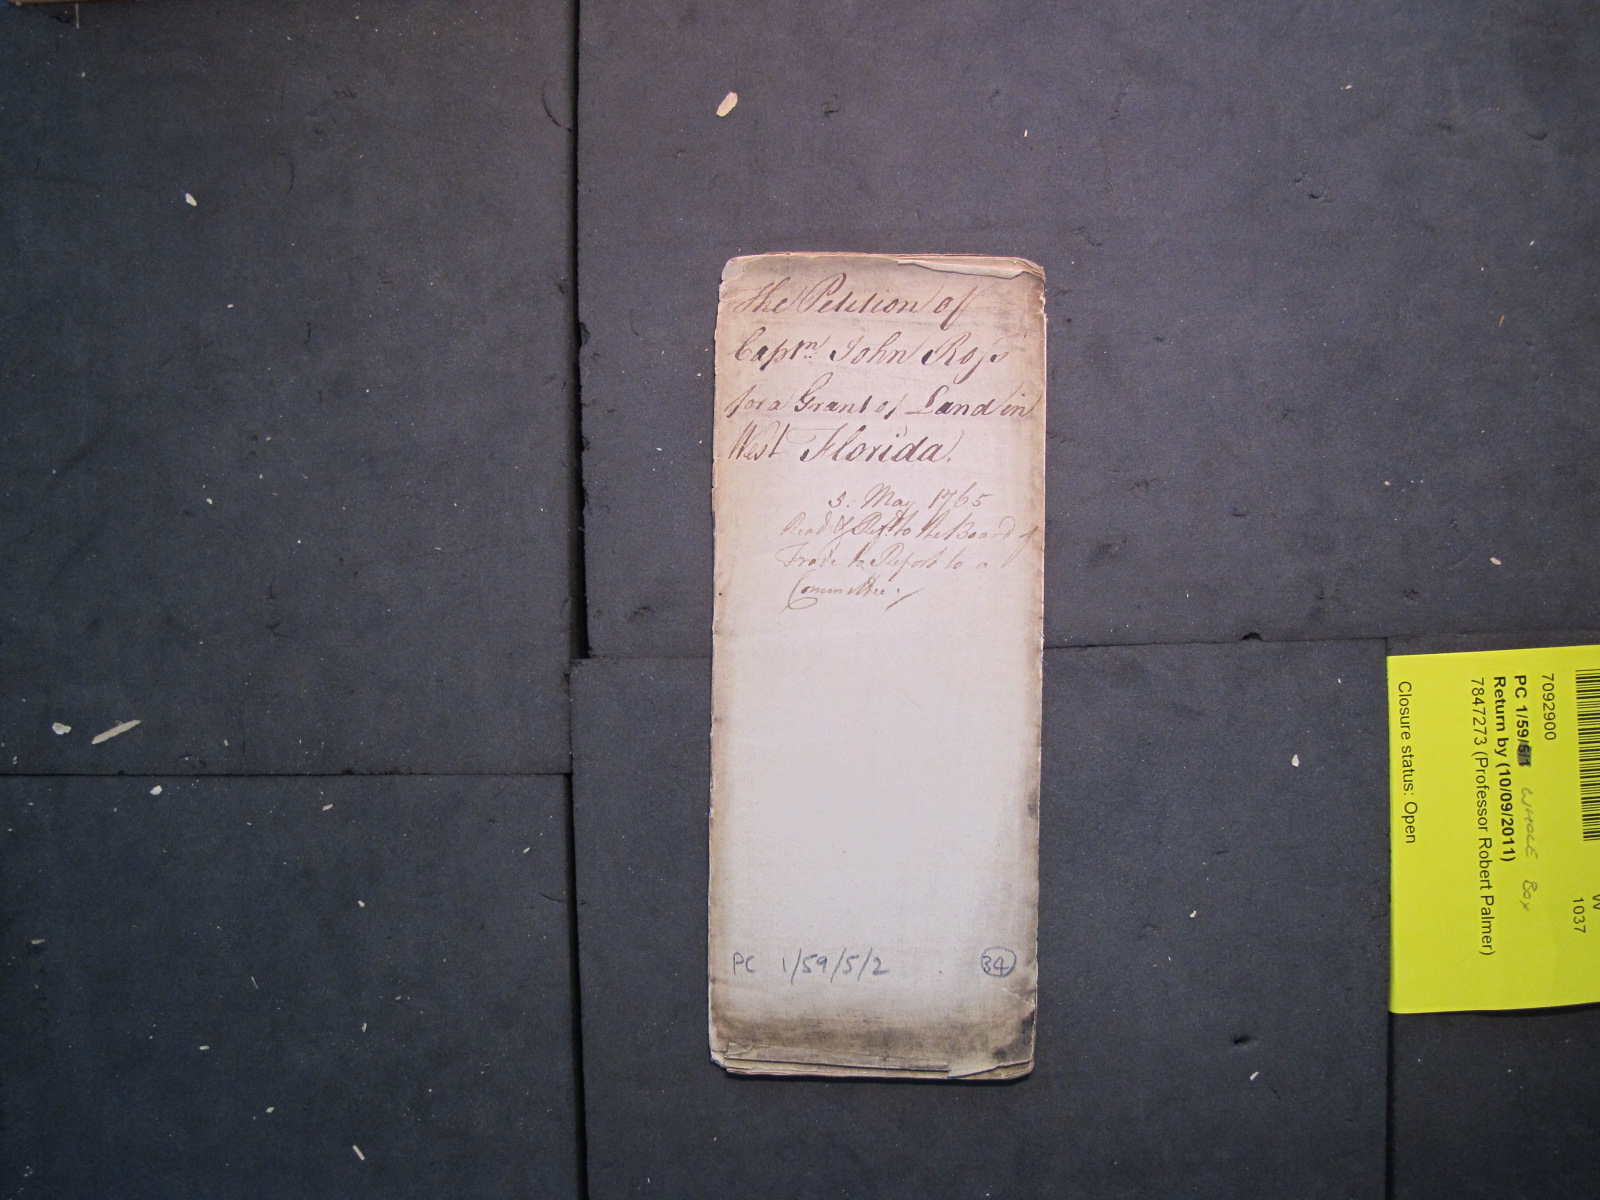 The Petition of
Captn. John Ross
for a Grant of Land in
West Florida.
3. May 1765
Read & Refd. to the Board of
Trade to Report to a
Committee.
PC 1/59/5/2
34
W
1037
7092900
PC 1/59/5/1 WHOLE BOX
Return by (10/09/2011)
7847273 (Professor Robert Palmer)
Closure status: Open